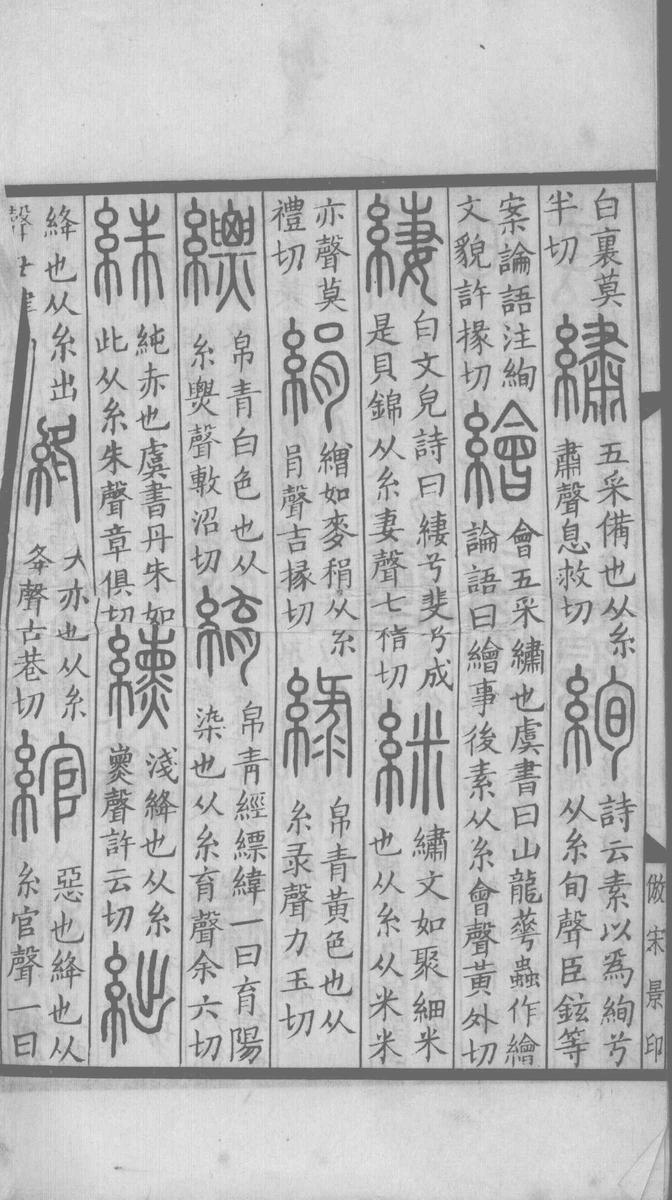 白裏莫
半切
繡
五采備也从糸
肅聲息救切
絢
詩云素以爲絢兮
从糸旬聲臣鉉等
案論語注絢
文貌許掾切
繪
會五采繡也虞書曰山龍華蟲作繪
論語曰繪事後素从糸會聲黃外切
緀
白文皃詩曰緀兮斐兮成
是貝錦从糸妻聲七稽切
絲
繡文如聚細米
也从糸从米米
亦聲莫
禮切
絹
繒如麥稍从糸
肙聲吉掾切
綠
帛青黃色也从
糸彔聲力玉切
縹
帛青白色也从
糸票聲敷沼切
䋭
帛青經縹緯一曰育陽
染也从糸育聲余六切
絑
純赤也虞書丹朱如
此从糸朱聲章俱切
纁
淺絳也从糸
熏聲許云切
絀
絳也从糸出
聲
絳
大赤也从糸
夅聲古巷切
綰
惡也絳也从
糸官聲一曰
倣宋景印